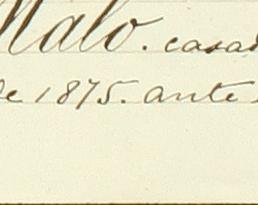 Malo. casad
de 1875. ante